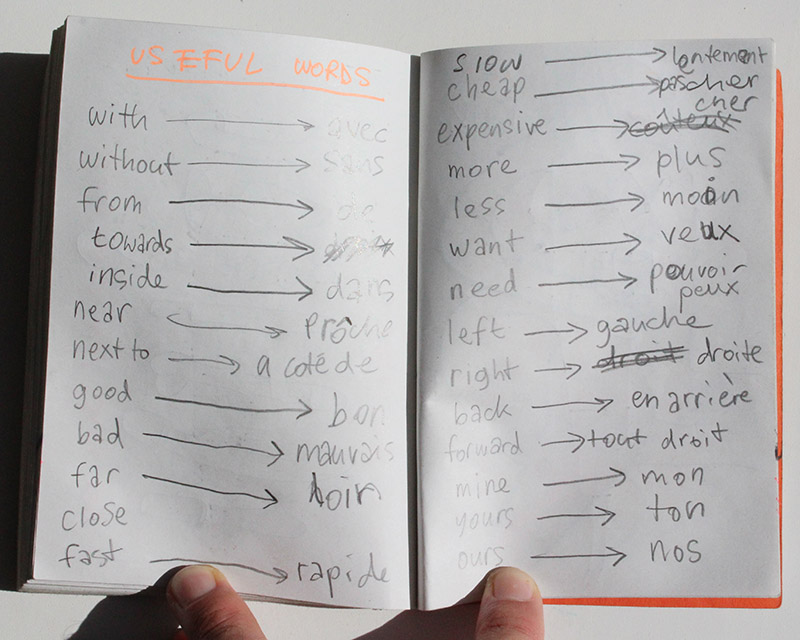 USEFUL WORDS
with → avec
without → sans
from → de
towards →
inside → dans
near → prôche
next to → a coté de
good → bon
bad → mauvais
far → loin
close
fast → rapide
slow → lentement
cheap → pascher
cher
expensive → coûteux
more → plus
less → moin
want → veux
need → pouvoir
peux
left → gauche
right → droit droite
back → en arrière
forward → tout droit
mine → mon
yours → ton
ours → nos